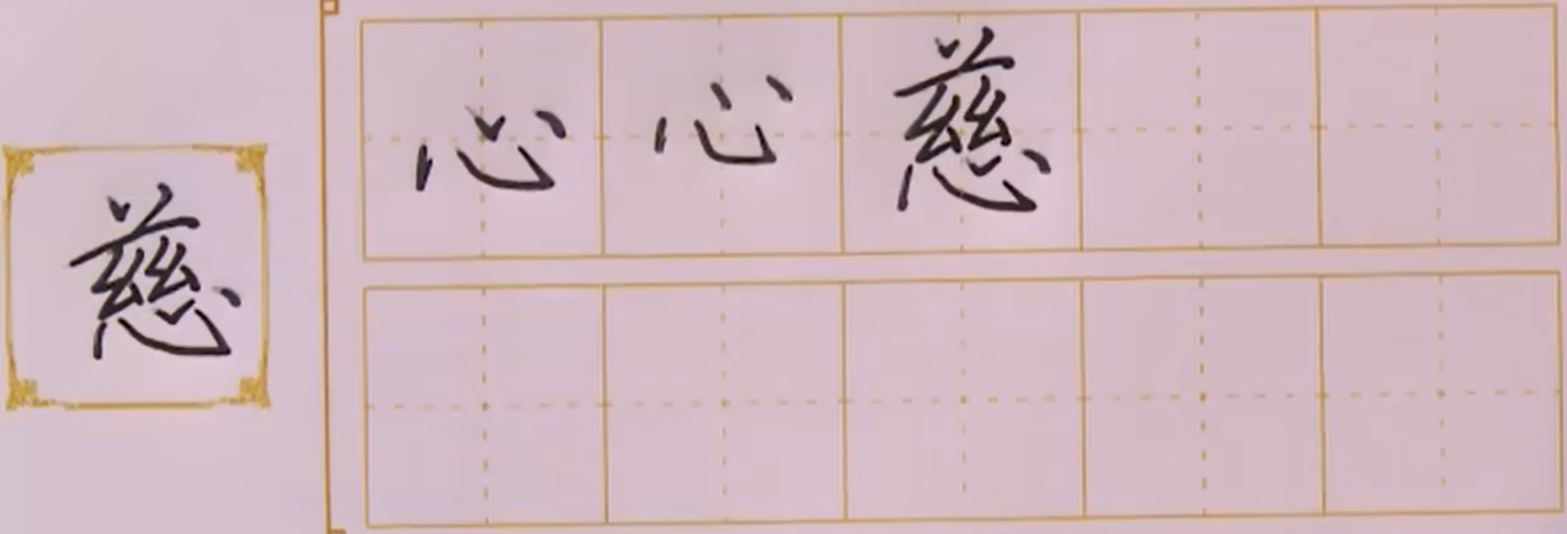 慈
心心慈